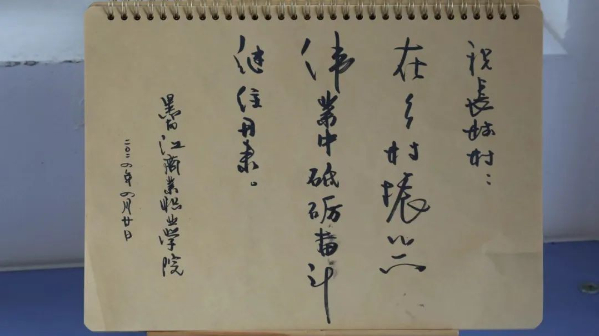 祝長林村：
在乡村振兴
伟業中砥砺奋斗
继往开来。
黑龙江商業职业学院
二〇二四年四月廿日